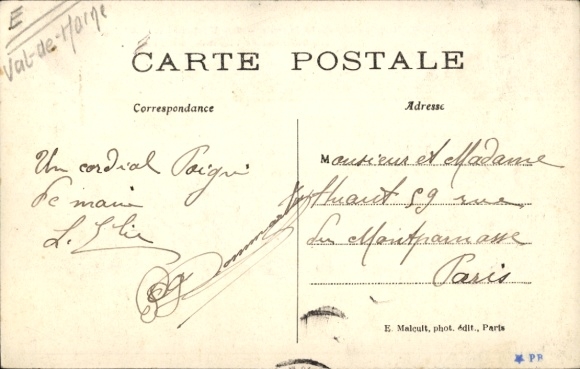 E
Val-de-Marne
CARTE POSTALE
Correspondance
Adresse
Un cordial Poigné
de main
Monsieur et Madame
59 rue
du Montparnasse
Paris
E. Malcuit, phot. édit., Paris
PB